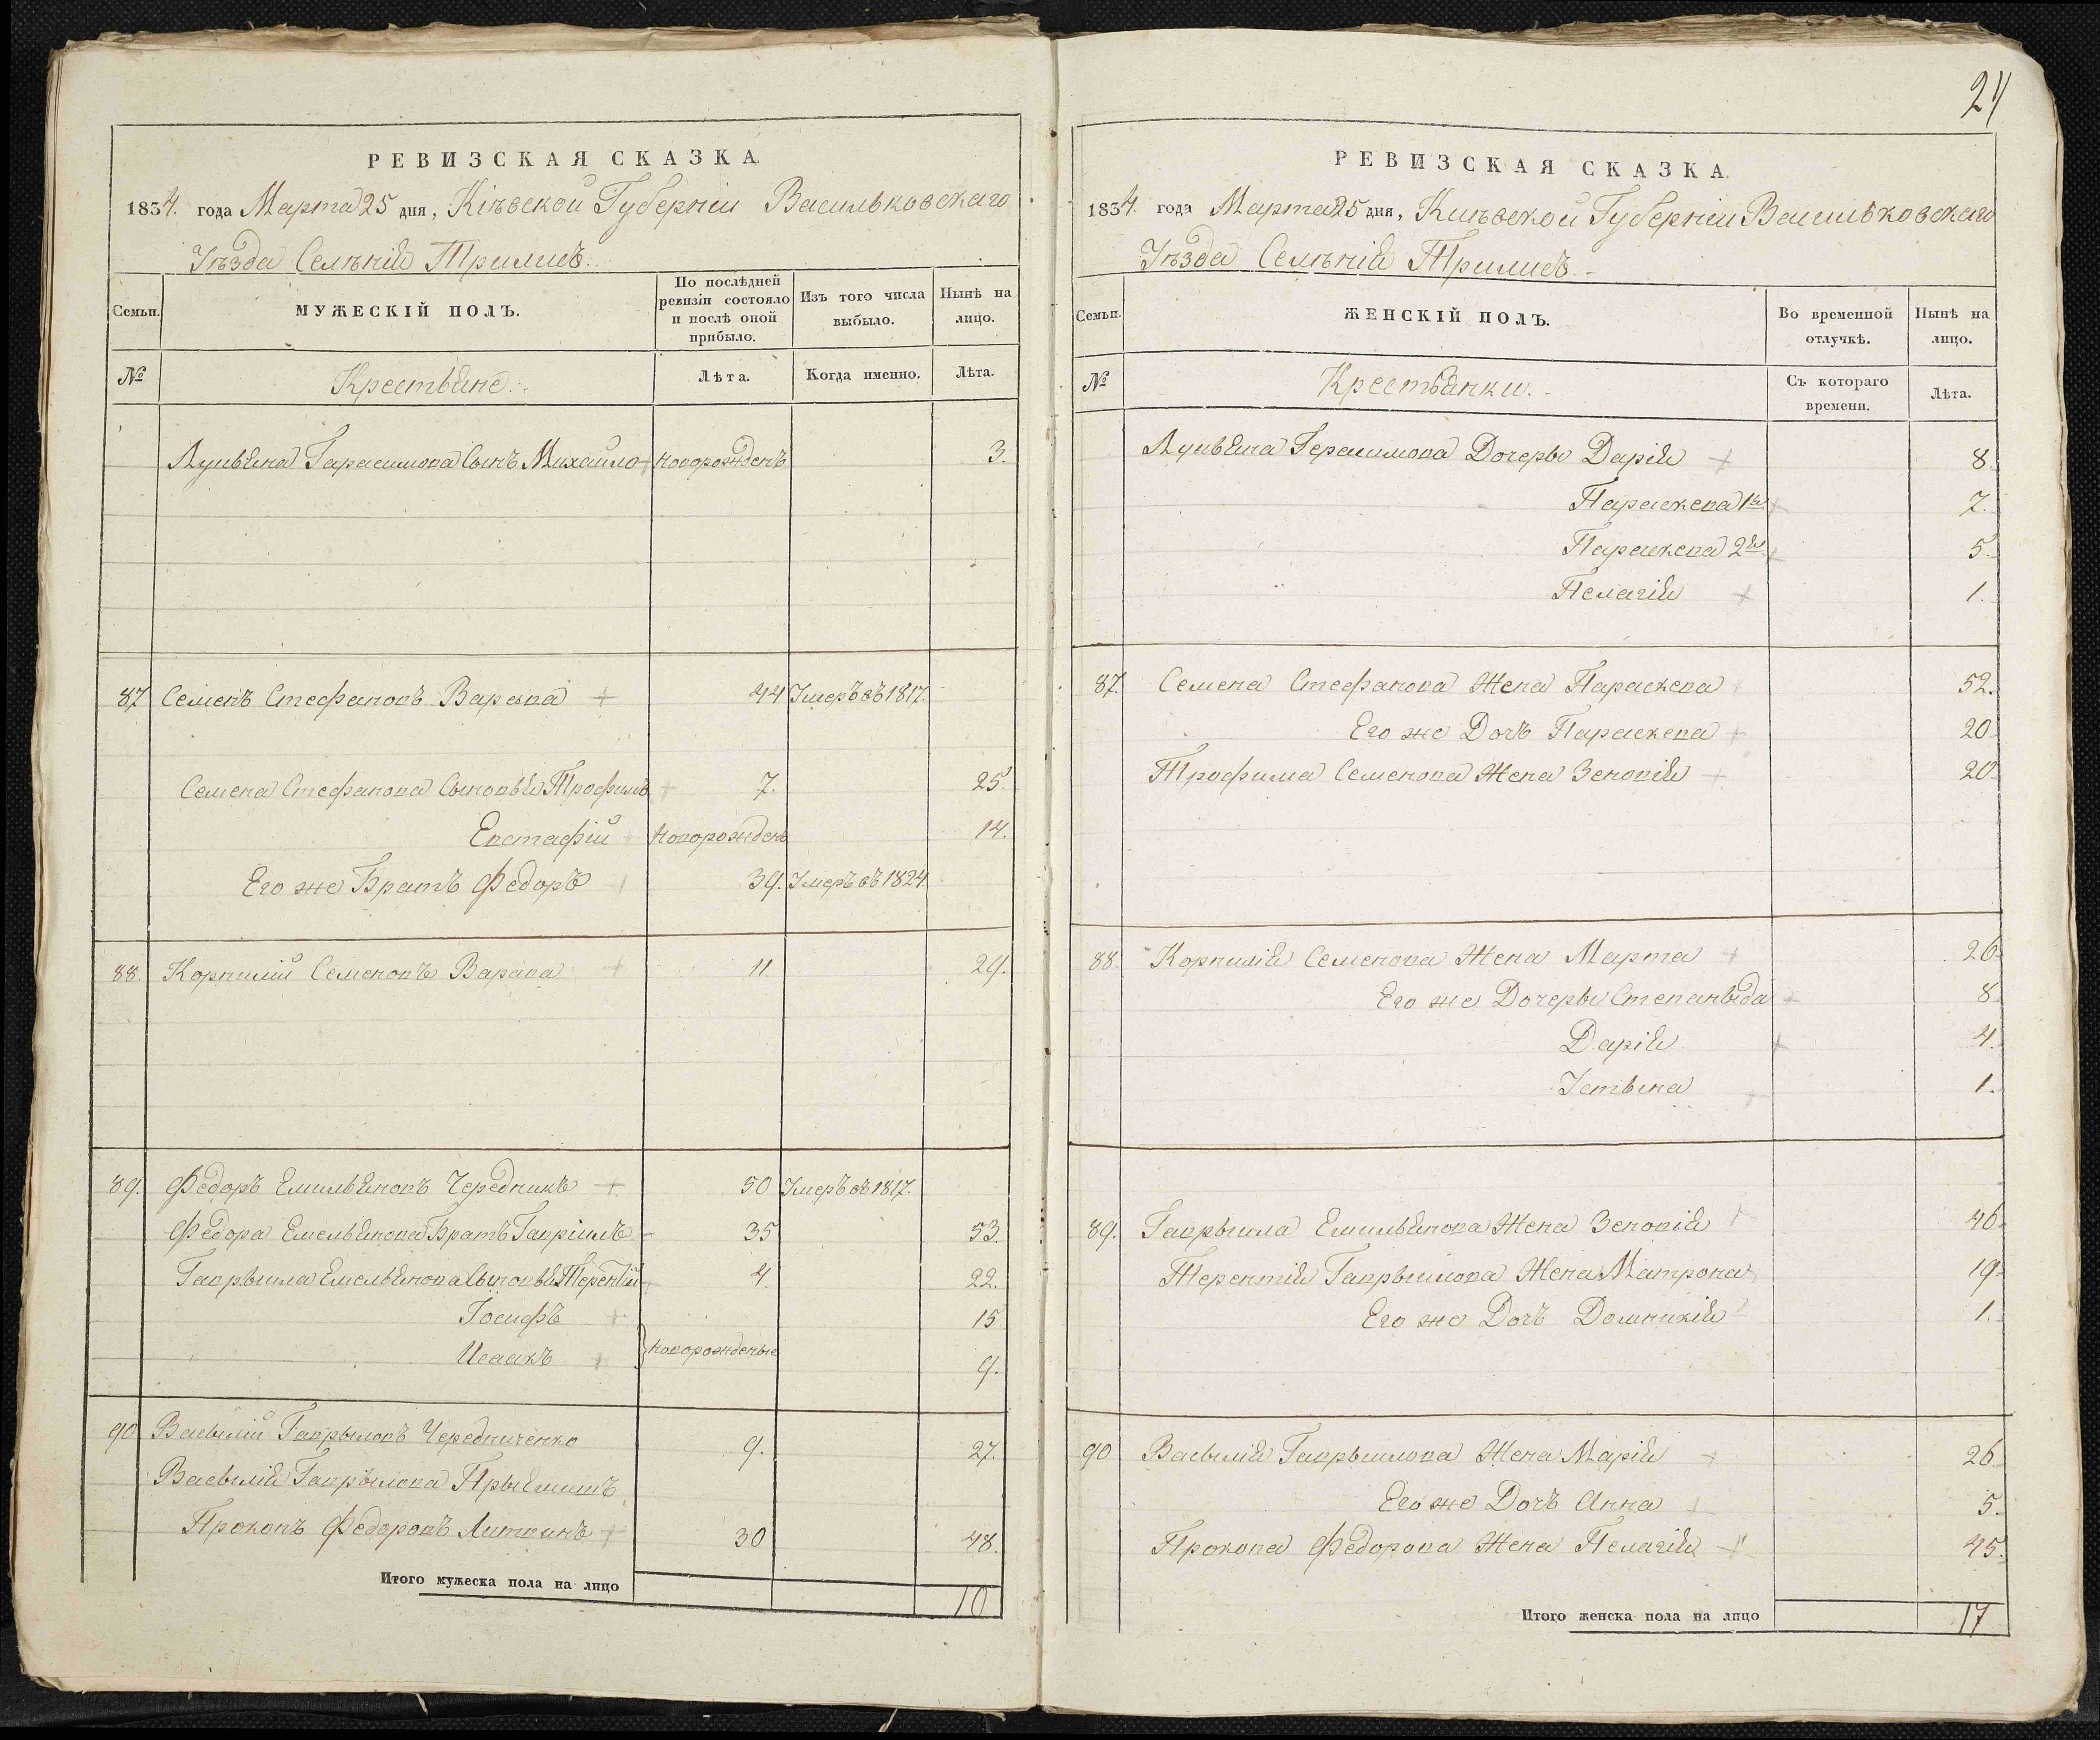 РЕВИЗСКАЯ СКАЗКА.
1834. года Марта 25 дня, Кіевской Губерніи Васильковскаго
Уѣзда Селѣнія Трилисъ.
Семьи.
МУЖЕСКІЙ ПОЛЪ.
По послѣдней ревизіи состояло и послѣ оной прибыло.
Изъ того числа выбыло.
Нынѣ на лицо.
№
Крестьяне.
Лѣта.
Когда именно.
Лѣта.
Лукьяна Гарасимова Сынъ Михайло новорожденъ 3.
87 Семенъ Стефановъ Варава 44 Умеръ въ 1817.
Семена Стефанова Сыновья Трофимъ 7. 25.
Евстафій новорожденъ 14.
Его же Братъ Федоръ 39. Умеръ въ 1824
88. Корнилій Семеновъ Варава 11 29.
89. Федоръ Емильяновъ Чередникъ 50 Умеръ въ 1817.
Федора Емельянова Братъ Гавріилъ 35 53.
Гаврыила Емельянова Сыновья Терентій 4. 22.
Іосифъ 15
Исаакъ новорожденые 9.
90 Васылій Гаврыловъ Чередниченко 9. 27.
Васылія Гаврылова Прыемышъ
Прокопъ Федоровъ Литвинъ 30 48.
Итого мужеска пола на лицо 10
24
РЕВИЗСКАЯ СКАЗКА.
1834. года Марта 25 дня, Кіевской Губерніи Васильковскаго
Уѣзда Селѣнія Трилисъ.
Семьи.
ЖЕНСКІЙ ПОЛЪ.
Во временной отлучкѣ.
Нынѣ на лицо.
№
Крестьянки.
Съ котораго времени.
Лѣта.
Лукьяна Герасимова Дочеры Дарія 8.
Параскева 1я 7.
Параскева 2я 5.
Пелагія 1.
87. Семена Стефанова Жена Параскева 52.
Его же Дочъ Параскева 20.
Трофима Семенова Жена Зеновія 20.
88. Корнилія Семенова Жена Марта 26.
Его же Дочеры Степаныда 8
Дарія 4.
Устына 1.
89. Гаврыила Емильянова Жена Зеновія 46.
Терентія Гаврыилова Жена Матрона 19.
Его же Дочъ Домникія 1.
90 Васылія Гаврыилова Жена Марія 26.
Его же Дочъ Анна 5.
Прокопа Федорова Жена Пелагія 45.
Итого женска пола на лицо 17